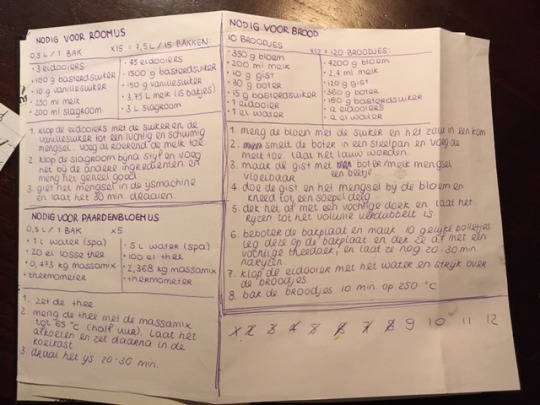 NODIG VOOR ROOMUS
0,5 L / 1 BAK
X15 = 7,5 L / 15 BAKKEN
• 3 eidooiers
• 100 g basterdsuiker
• 10 g vanillesuiker
• 250 ml melk
• 200 ml slagroom
• 45 eidooiers
• 1500 g basterdsuiker
• 150 g vanillesuiker
• 3,75 L melk
• 3 L slagroom
1. klop de eidooiers met de suiker en de
vanillesuiker tot een luchtig en schuimig
mengsel. voeg al roerend de melk toe.
2. klop de slagroom bijna stijf en voeg
het bij de andere ingrediënten en
meng het geheel goed
3. giet het mengsel in de ysmachine
en laat het 30 min draaien.
NODIG VOOR PAARDENBLOEMUS
0,5 L / 1 BAK
X5
• 1 L water (spa)
• 20 el losse thee
• 0,473 kg massamix
• thermometer
• 5 L water (spa)
• 100 el thee
• 2,368 kg massamix
• thermometer
1. zet de thee
2. meng de thee met de massamix
tot 65 °C (half uur). laat het
afkoelen en zet daarna in de
koelkast
3. draai het ys 20-30 min.
NODIG VOOR BROOD
10 BROODJES
X12 = 120 BROODJES
• 350 g bloem
• 200 ml melk
• 10 g gist
• 30 g boter
• 15 g basterdsuiker
• 1 eidooier
• 1 el water
• 4200 g bloem
• 2,4 ml melk
• 120 g gist
• 360 g boter
• 180 g basterdsuiker
• 12 eidooiers
• 12 el water
1. meng de bloem met de suiker en het zout in een kom
2. smelt de boter in een steelpan en voeg de
melk toe. laat het lauw worden
3. maak de gist met een beetje boter/melk mengsel
vloeibaar
4. doe de gist en het mengsel bij de bloem en
kneed tot een soepel deeg
5. dek het af met een vochtige doek en laat het
rijzen tot het volume verdubbelt is
6. beboter de bakplaat en maak 10 gelijke bolletjes
leg deze op de bakplaat en dek ze af met een
vochtige theedoek, en laat ze nog 20-30 min
narijzen
7. klop de eidooier met het water en strijk over
de broodjes
8. bak de broodjes 10 min op 250 °C
9 10 11 12